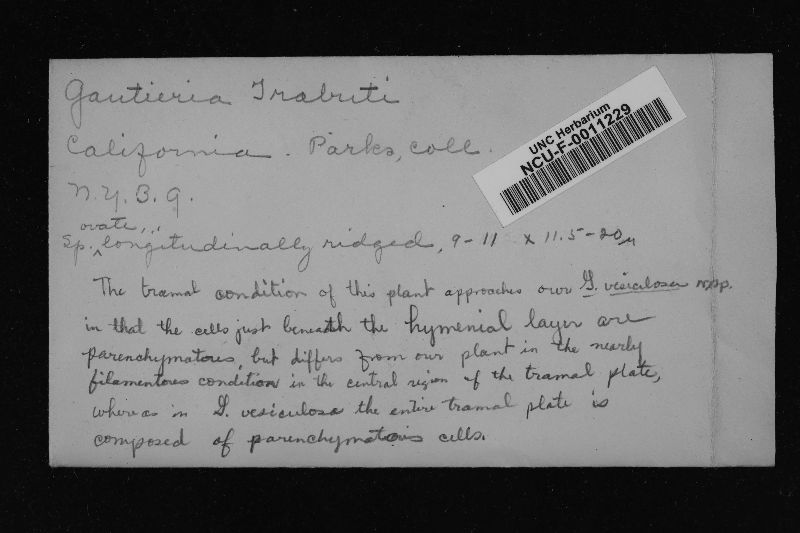 Gautieria Trabuti
California. Parks, coll.
UNC Herbarium
NCU-F-0011229
N.Y.B.G.
ovate,
Sp. ^ longitudinally ridged, 9-11 x 11.5-20μ
The tramal condition of this plant approaches our G. vesiculosa n.sp.
in that the cells just beneath the hymenial layer are
parenchymatous, but differs from our plant in the nearly
filamentous condition in the central region of the tramal plate,
whereas in G. vesiculosa the entire tramal plate is
composed of parenchymatous cells.